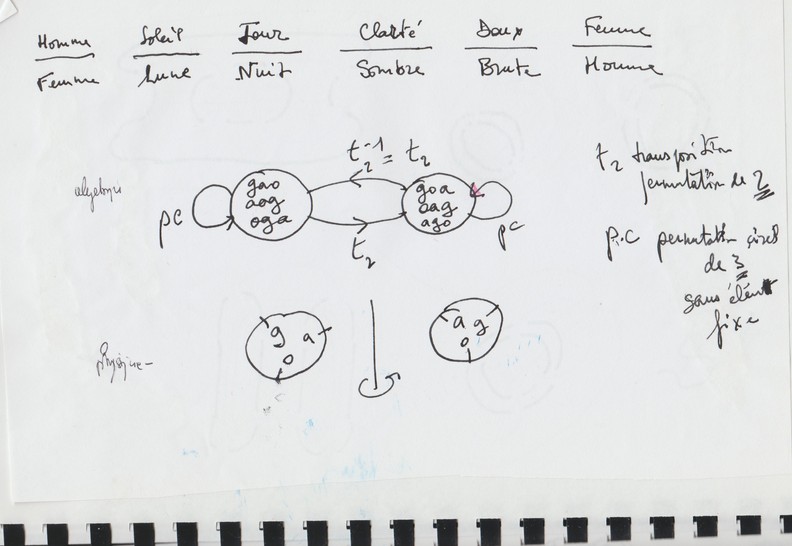 Homme Soleil Jour Clarté Doux Femme
Femme Lune Nuit Sombre Brute Homme
t₂⁻¹ = t₂
algèbre
gao
aog
oga
goa
oag
ago
pc
pc
t₂
t₂ transposition
permutation de 2
p.c permutation circl
de 3
sans élémt
fixe
physique-
g a
o
a g
o